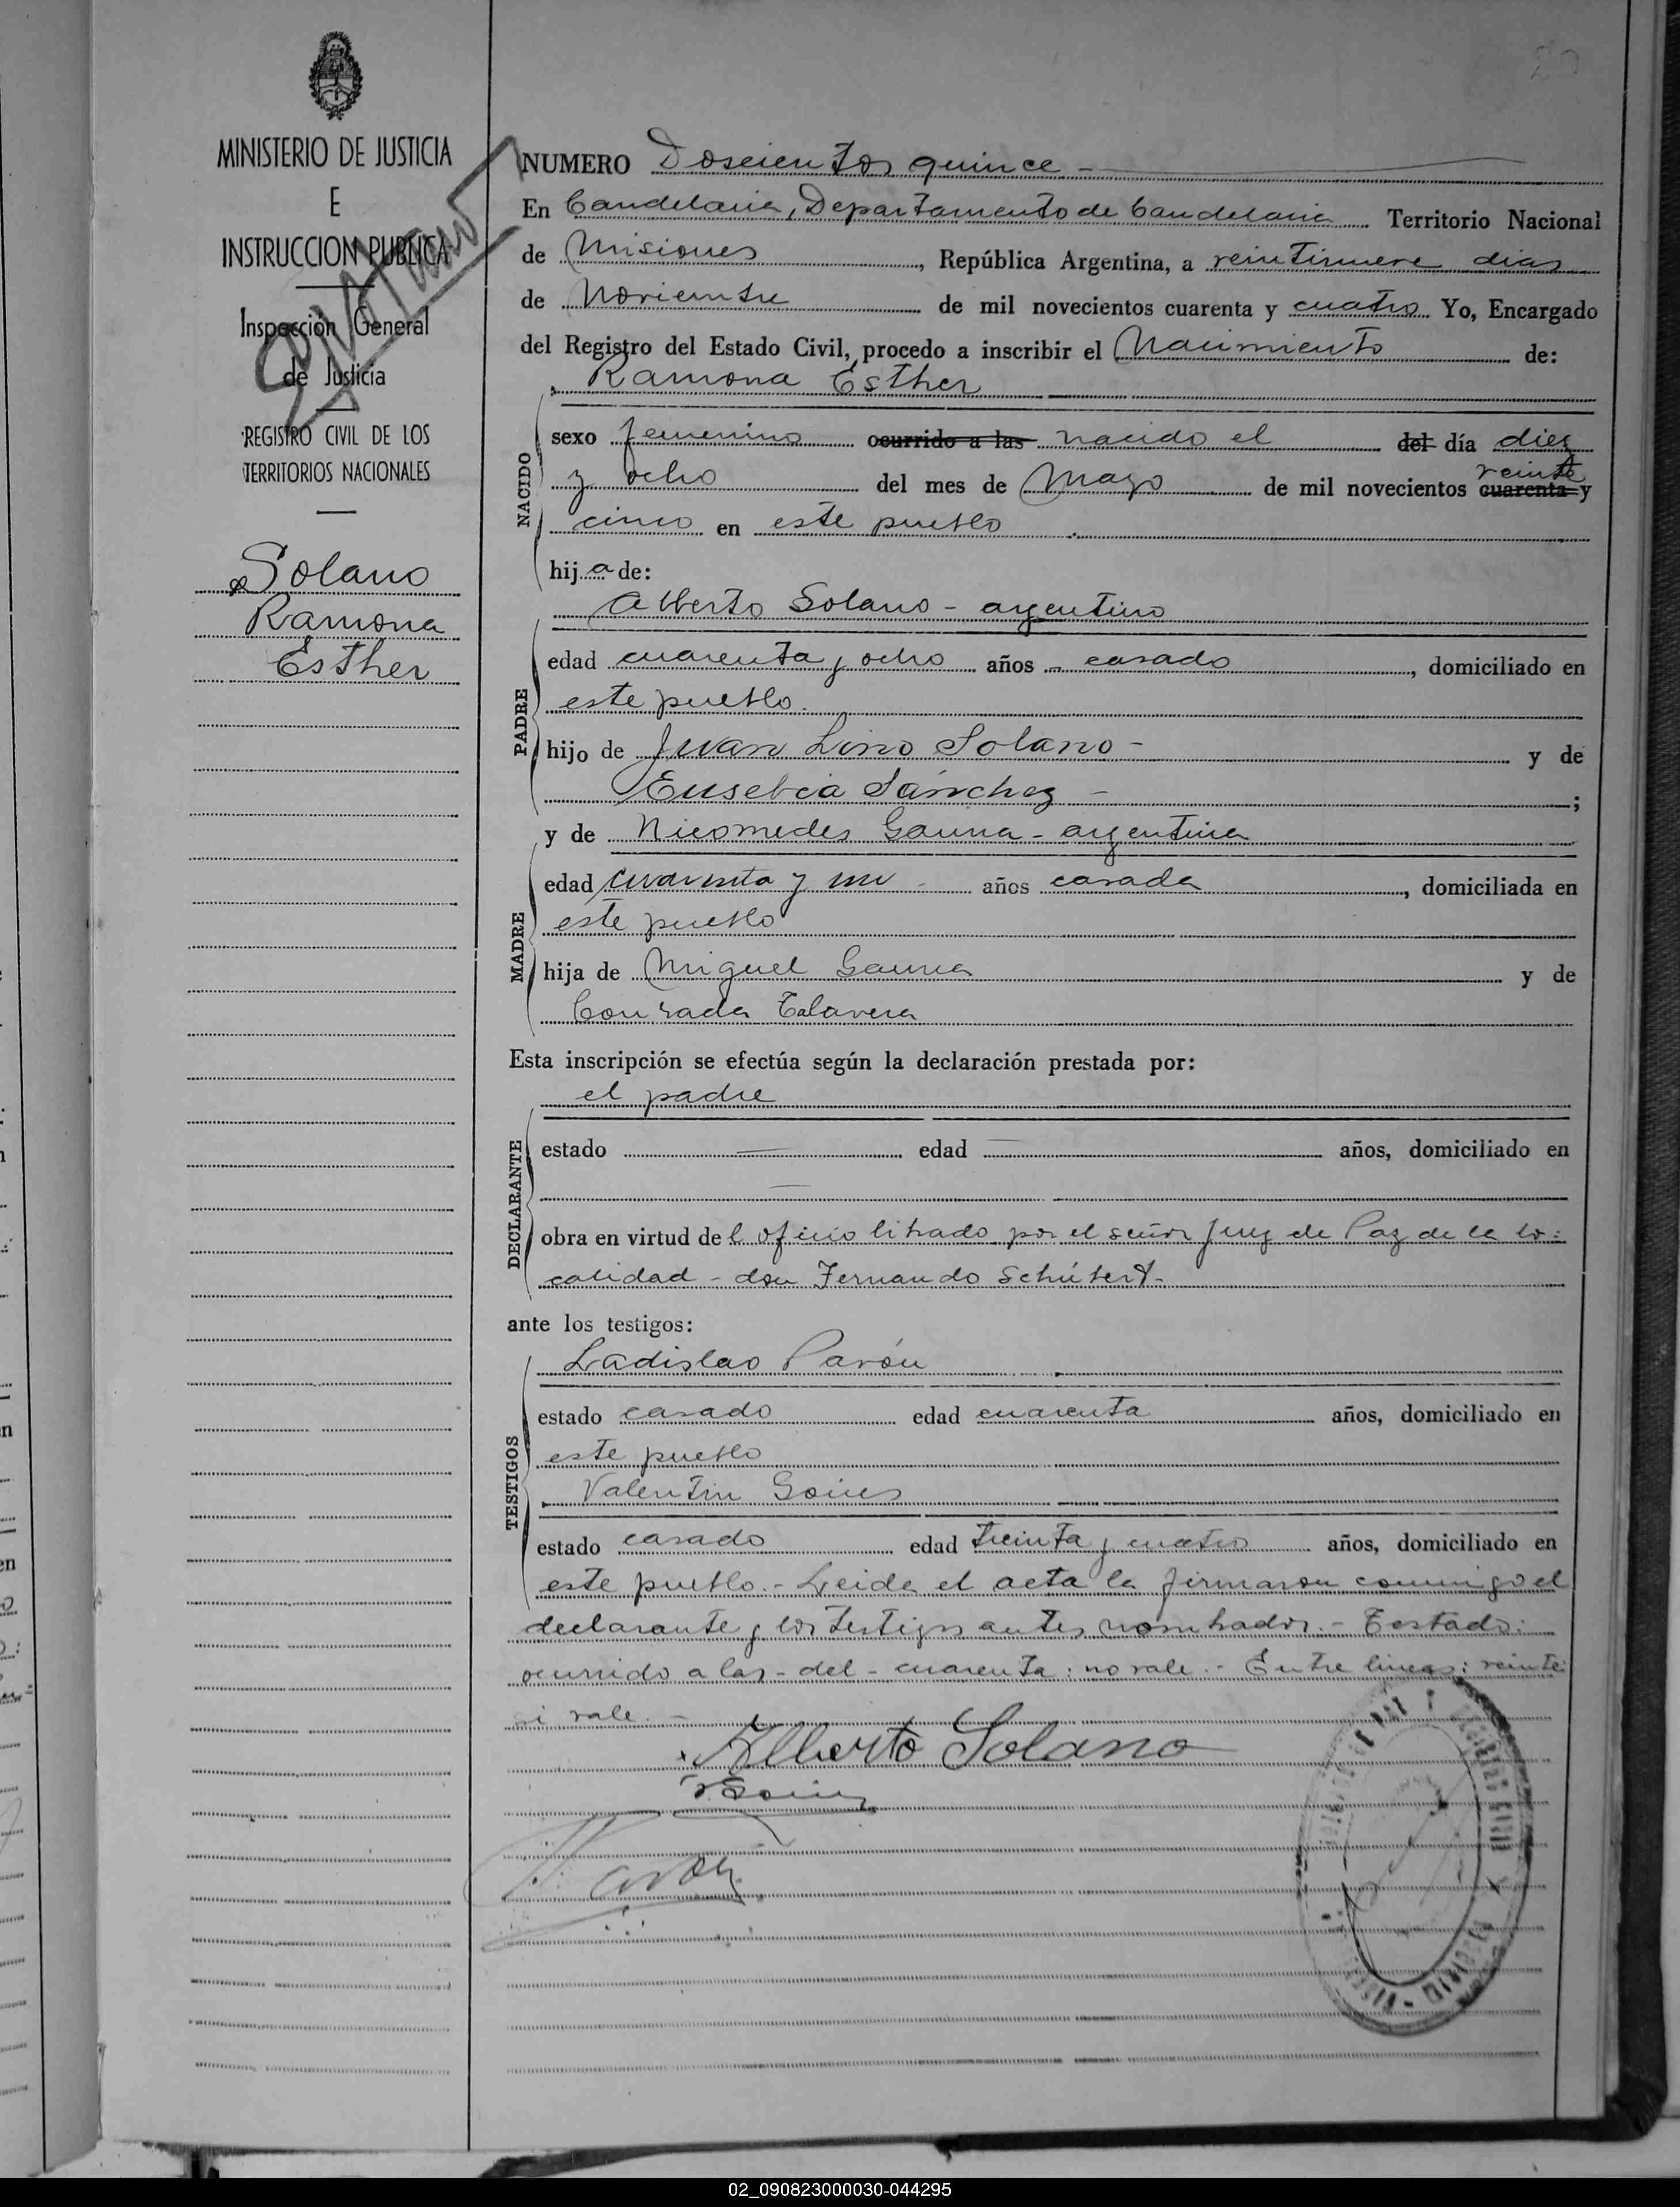 MINISTERIO DE JUSTICIA
E
INSTRUCCION PUBLICA
Inspección General
de Justicia
REGISTRO CIVIL DE LOS
TERRITORIOS NACIONALES
Solano
Ramona
Esther
NUMERO Doscientos quince -
En Candelaria, Departamento de Candelaria Territorio Nacional
de Misiones, República Argentina, a veintinueve dias
de Noviembre de mil novecientos cuarenta y cuatro Yo, Encargado
del Registro del Estado Civil, procedo a inscribir el Nacimiento de:
Ramona Esther
NACIDO
sexo femenino ocurrido a las nacido el del día diez
y ocho del mes de Mayo de mil novecientos cuarenta veinte y
cinco en este pueblo.
hija de:
Alberto Solano - argentino
PADRE
edad cuarenta y ocho años - casado, domiciliado en
este pueblo.
hijo de Juan Lino Solano - y de
Eusebia Sánchez - ;
y de Nicomedes Gauna - argentina
MADRE
edad cuarenta y un - años casada, domiciliada en
este pueblo
hija de Miguel Gauna y de
Conrada Talavera
Esta inscripción se efectúa según la declaración prestada por:
el padre
DECLARANTE
estado — edad — años, domiciliado en
—
obra en virtud del oficio librado por el señor Juez de Paz de la lo=
calidad - don Fernando Schúbert -
ante los testigos:
Ladislao Pavón
TESTIGOS
estado casado edad cuarenta años, domiciliado en
este pueblo
Valentin Goires
estado casado edad treinta y cuatro años, domiciliado en
este pueblo. - Leida el acta la firmaron conmigo el
declarante y los testigos antes nombrados. - Testado:
ocurrido a las - del - cuarenta: no vale. - Entre lineas: veinte
si vale. -
Alberto Solano
02_090823000030-044295